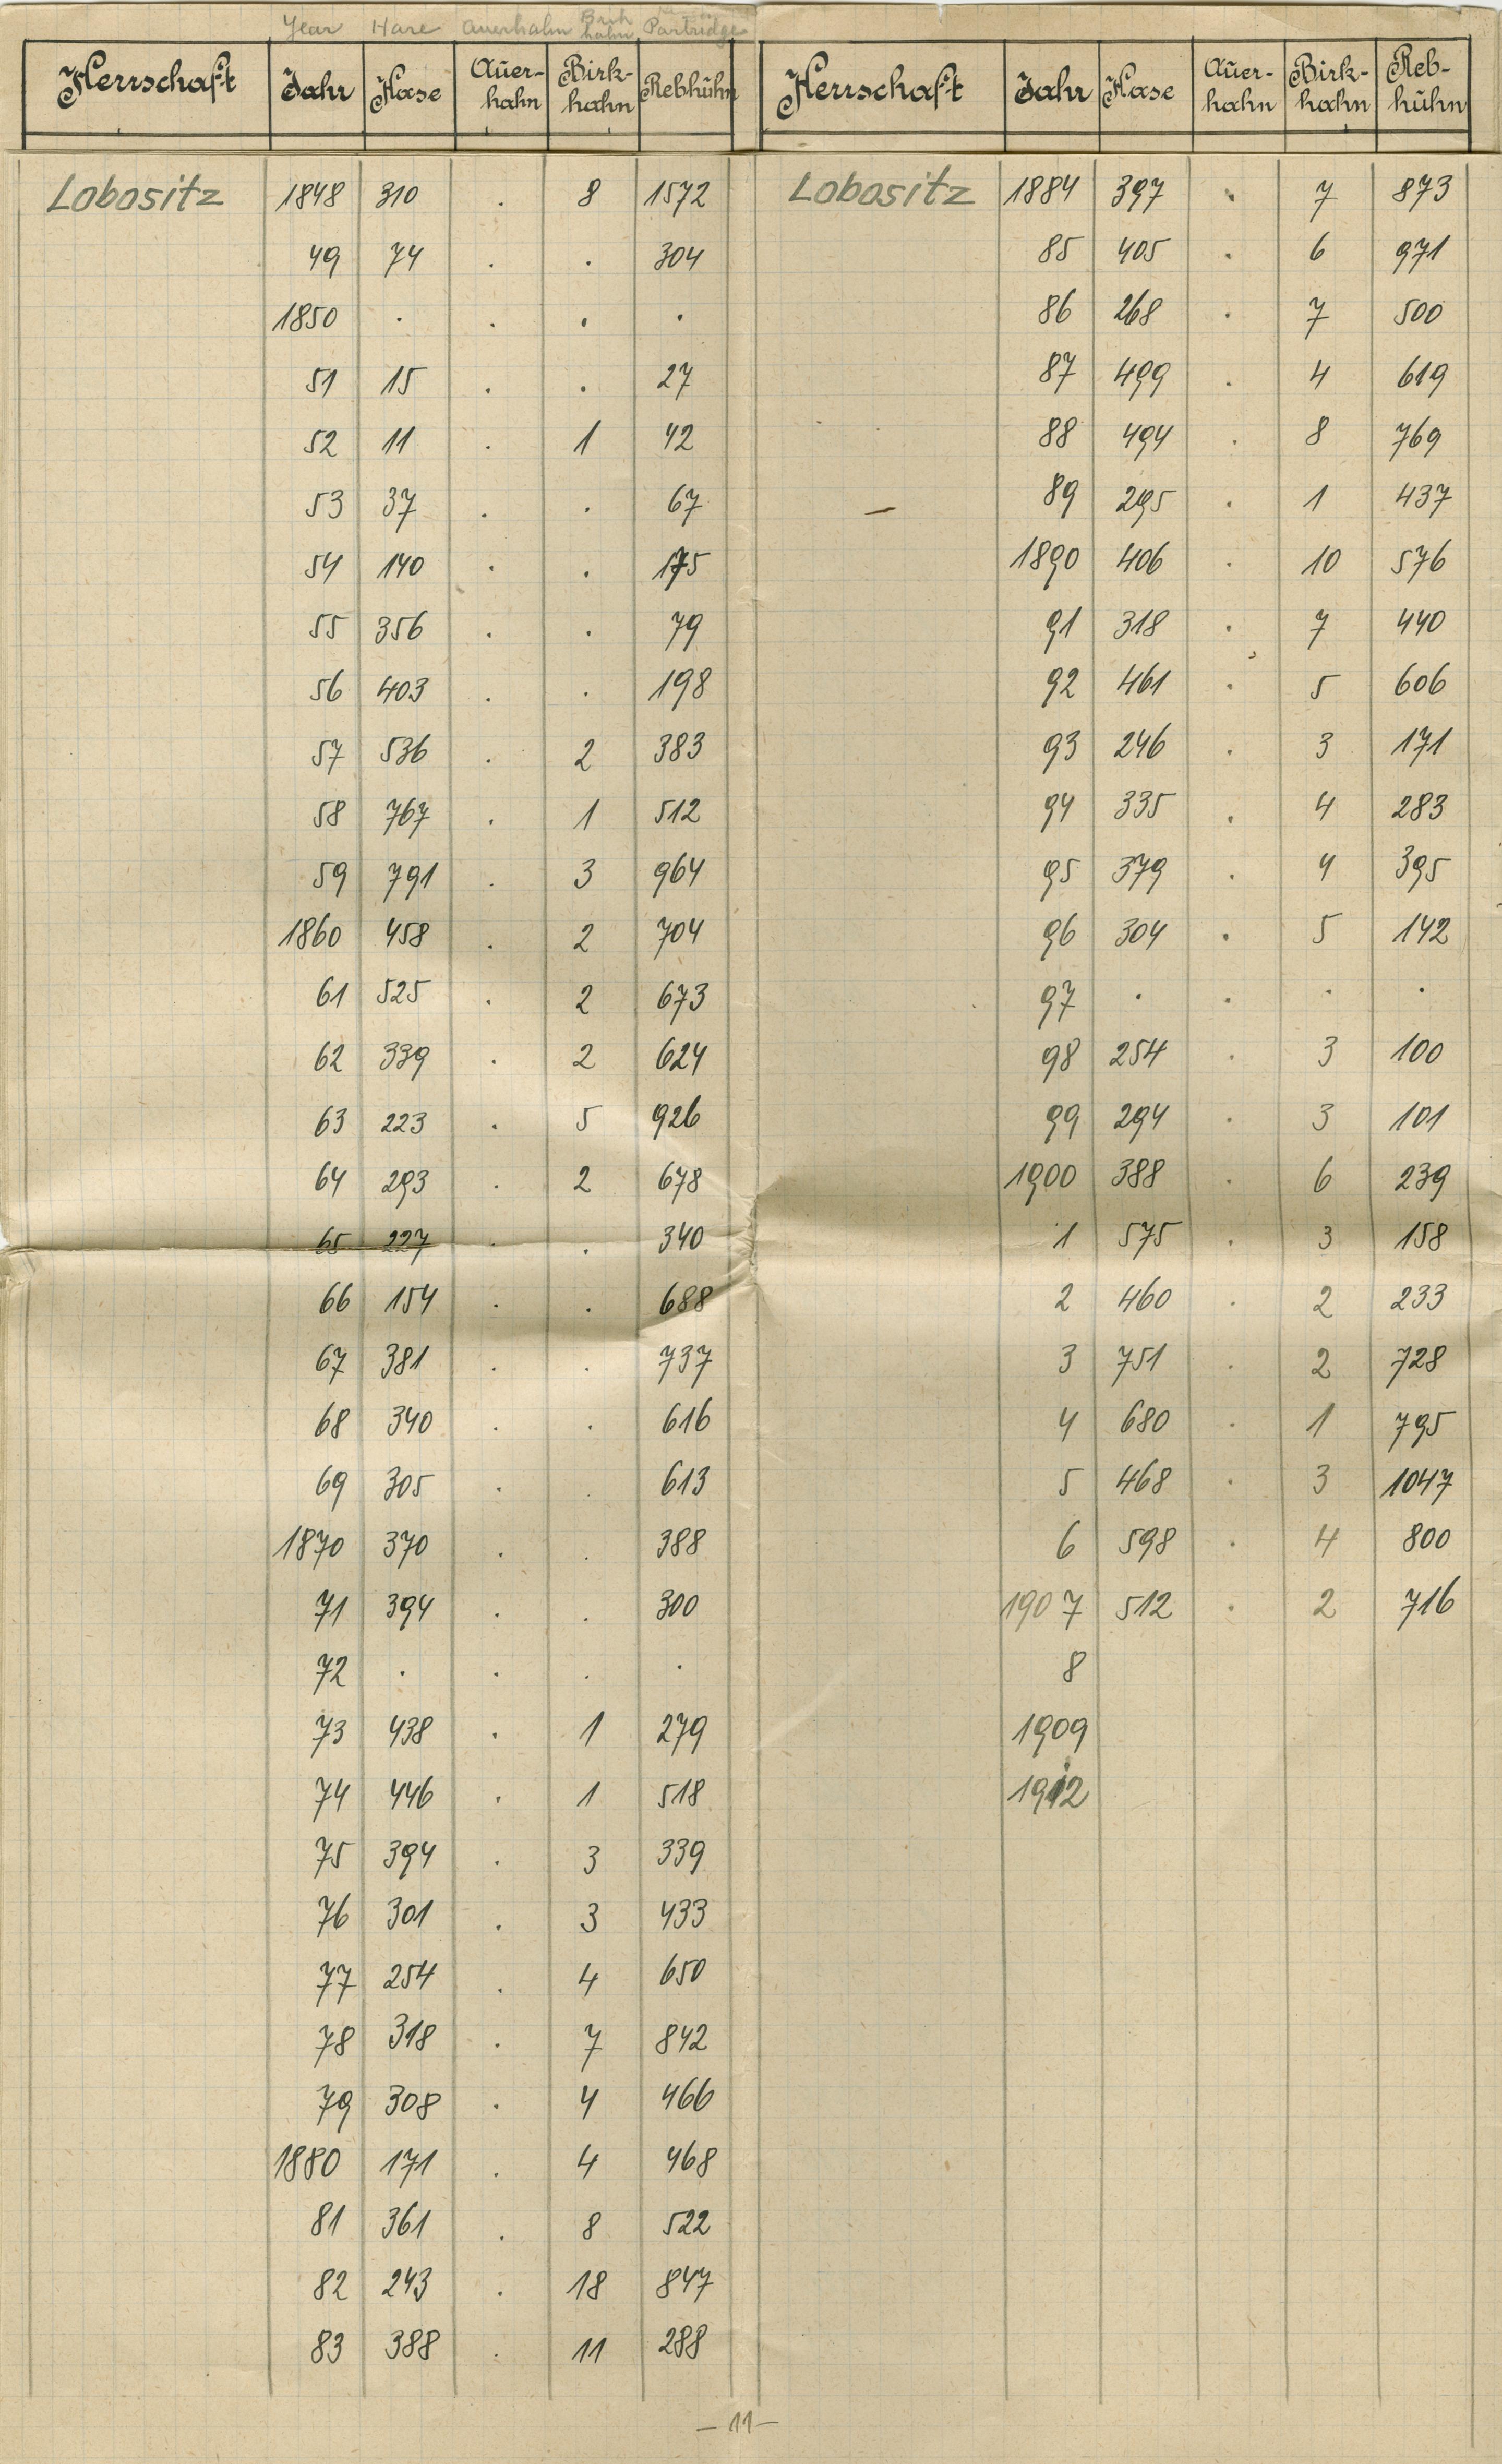 Year Hare Auerhahn Birkhahn Partridge
Herrschaft Jahr Hase Auer-hahn Birk-hahn Rebhuhn
Lobositz 1848 310 . 8 1572
49 74 . . 304
1850 . . . .
51 15 . . 27
52 11 . 1 42
53 37 . . 67
54 140 . . 175
55 356 . . 79
56 403 . . 198
57 536 . 2 383
58 767 . 1 512
59 791 . 3 964
1860 458 . 2 704
61 525 . 2 673
62 339 . 2 624
63 223 . 5 926
64 293 . 2 678
65 227 . . 340
66 154 . . 688
67 381 . . 737
68 340 . . 616
69 305 . . 613
1870 370 . . 388
71 394 . . 300
72 . . . .
73 438 . 1 279
74 446 . 1 518
75 394 . 3 339
76 301 . 3 433
77 254 . 4 650
78 318 . 7 842
79 308 . 4 466
1880 171 . 4 468
81 361 . 8 522
82 243 . 18 847
83 388 . 11 288
Herrschaft Jahr Hase Auer-hahn Birk-hahn Reb-huhn
Lobositz 1884 397 . 7 873
85 405 . 6 971
86 268 . 7 500
87 499 . 4 619
88 494 . 8 769
89 295 . 1 437
1890 406 . 10 576
91 318 . 7 440
92 461 . 5 606
93 246 . 3 171
94 335 . 4 283
95 379 . 4 395
96 304 . 5 142
97 . . . .
98 254 . 3 100
99 294 . 3 101
1900 388 . 6 239
1 575 . 3 158
2 460 . 2 233
3 751 . 2 728
4 680 . 1 795
5 468 . 3 1047
6 598 . 4 800
1907 512 . 2 716
8
1909
1912
– 11 –